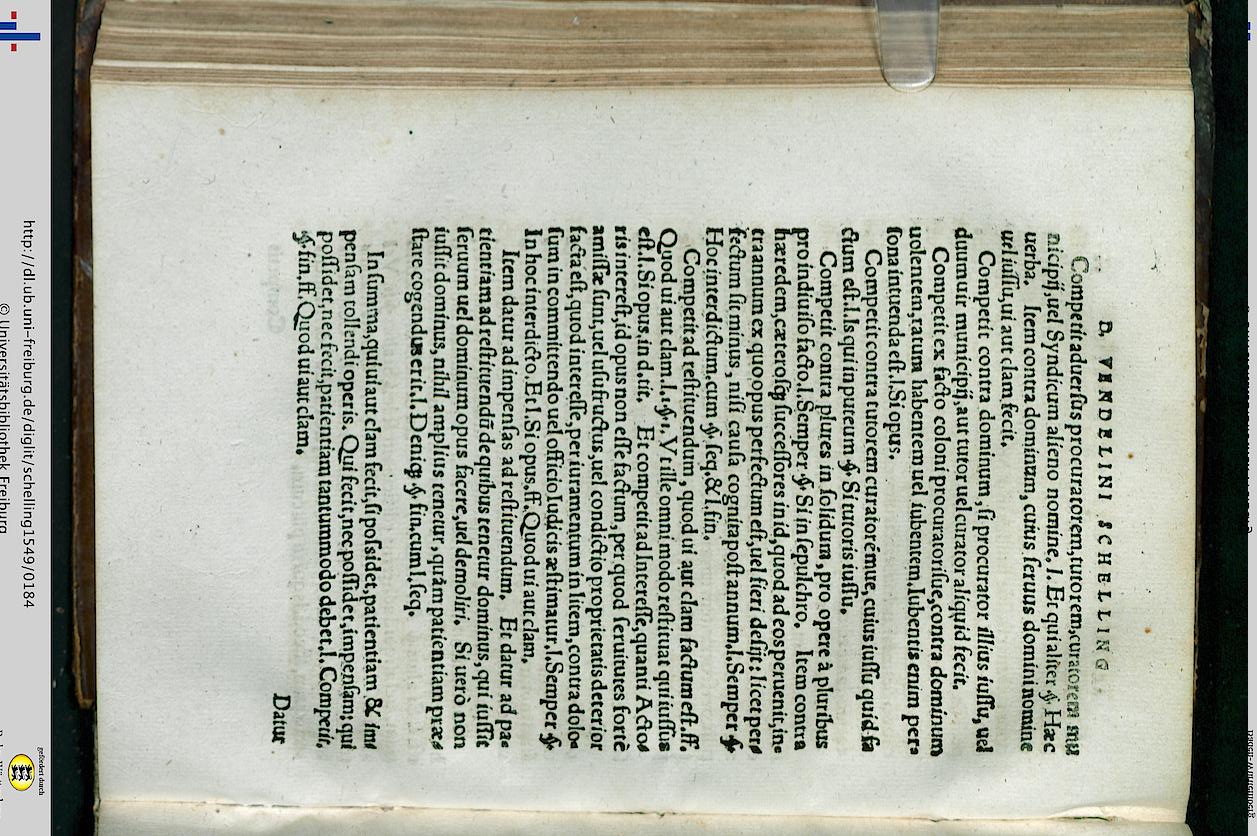 D. VENDELINI SCHELLING
Competit aduersus procuratorem, tutorem, curatorem mu
nicipij, uel Syndicum alieno nomine, l. Et qui aliter §. Hæc
uerba. Item contra dominum, cuius seruus domini nomine
uel iussu, ui aut clam fecit.
Competit contra dominum, si procurator illius iussu, uel
duumuir municipij, aut tutor uel curator aliquid fecit.
Competit ex facto coloni procuratorisue, contra dominum
uolentem, ratum habentem uel iubentem. Iubentis enim per-
sona intuenda est. l. Si opus.
Competit contra tutorem curatorémue, cuius iussu quid fa
ctum est. l. Is qui in puteum §. Si tutoris iussu.
Competit contra plures in solidum, pro opere à pluribus
pro indiuiso facto. l. Semper §. Si in sepulchro. Item contra
hæredem, cæterosq; successores in id, quod ad eos peruenit, in-
tra annum ex quo opus perfectum est, uel fieri desijt: licet per-
fectum sit minus, nisi causa cognita post annum. l. Semper §.
Hoc interdictum, cum §. seq. & l. fin.
Competit ad restituendum, quod ui aut clam factum est. ff.
Quod ui aut clam. l. 1. §. 1. Vt ille omni modo restituat qui iussus
est. l. Si opus, in d. tit. Et competit ad Interesse, quanti Acto-
ris interest, id opus non esse factum, per quod seruitutes fortè
amissæ sunt, uel ususfructus, uel condictio proprietatis deterior
facta est, quod interesse, per iuramentum in litem, contra dolo-
sum in committendo uel officio Iudicis æstimatur. l. Semper §.
In hoc interdicto. Et l. Si opus, ff. Quod ui aut clam.
Item datur ad impensas ad restituendum. Et datur ad pa-
tientiam ad restituendū de quibus tenetur dominus, qui iussit
seruum uel dominum opus facere, uel demoliri. Si uerò non
iussit dominus, nihil amplius tenetur, quàm patientiam præ-
stare cogendus erit. l. Deniq; §. fin. cum l. seq.
In summa, qui ui aut clam fecit, si possidet, patientiam & im-
pensam tollendi operis. Qui fecit, nec possidet, impensam: qui
possidet, nec fecit, patientiam tantummodo debet. l. Competit,
§. fin. ff. Quod ui aut clam.
Datur
http://dl.ub.uni-freiburg.de/diglit/schelling1549/0184
© Universitätsbibliothek Freiburg
gefördert durch